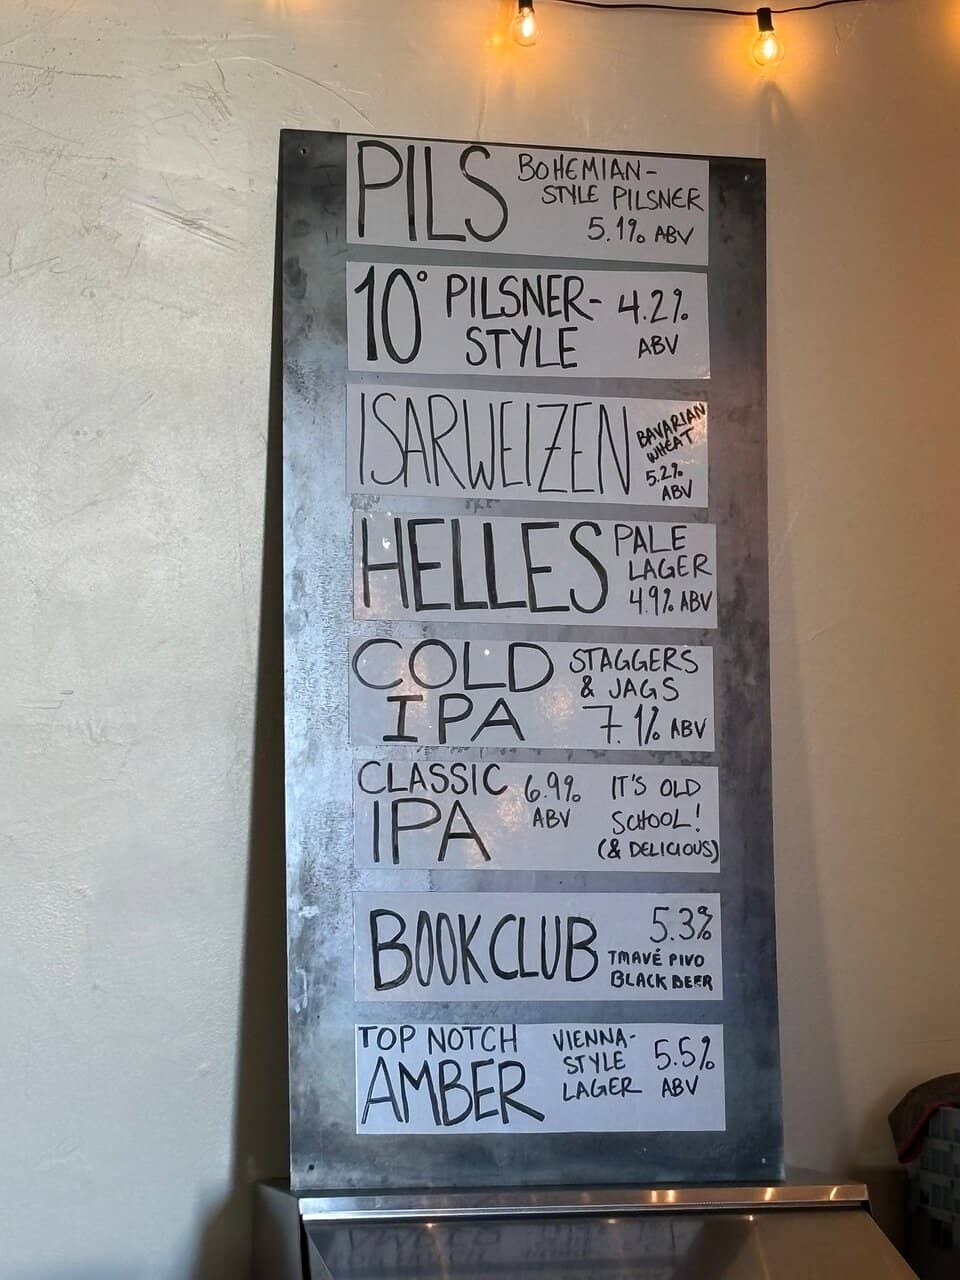 PILS
BOHEMIAN-
STYLE PILSNER
5.1% ABV
10° PILSNER-
STYLE
4.2%
ABV
ISARWEIZEN
BAVARIAN
WHEAT
5.2%
ABV
HELLES
PALE
LAGER
4.9% ABV
COLD
IPA
STAGGERS
& JAGS
7.1% ABV
CLASSIC
IPA
6.9%
ABV
IT'S OLD
SCHOOL!
(& DELICIOUS)
BOOK CLUB
5.3%
TMAVÉ PIVO
BLACK BEER
TOP NOTCH
AMBER
VIENNA-
STYLE
LAGER
5.5%
ABV